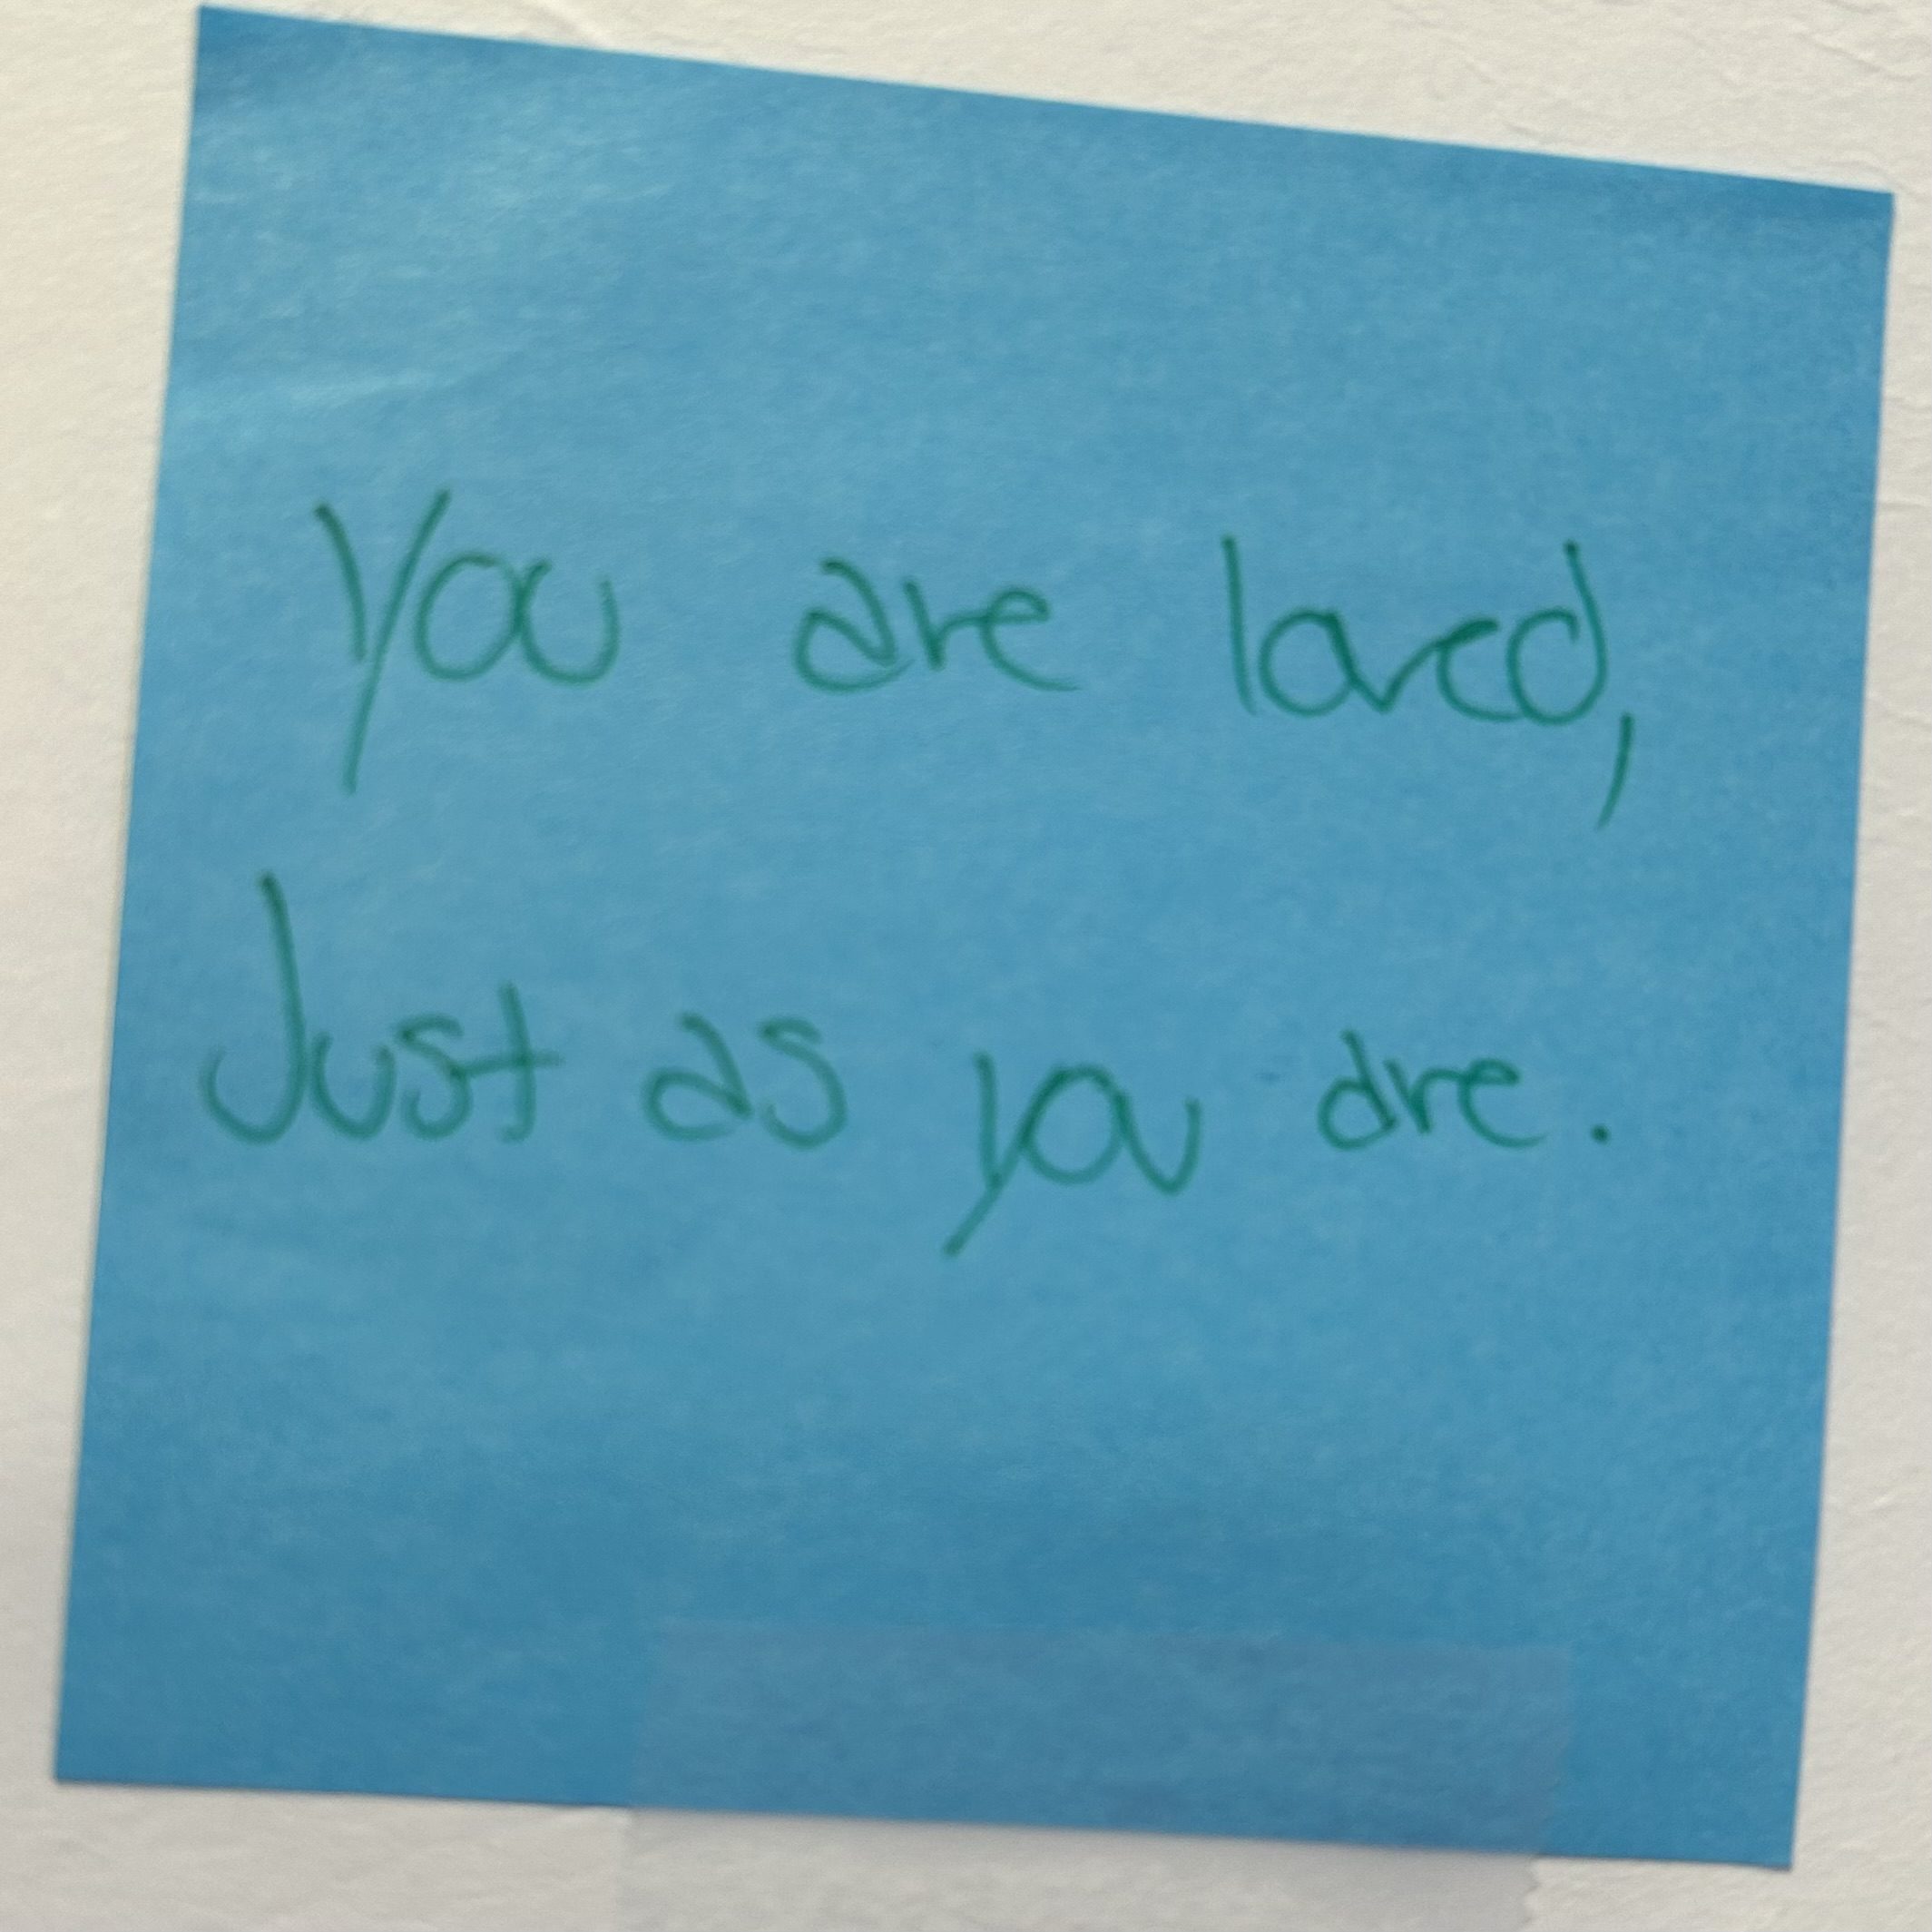 You are loved,
Just as you are.